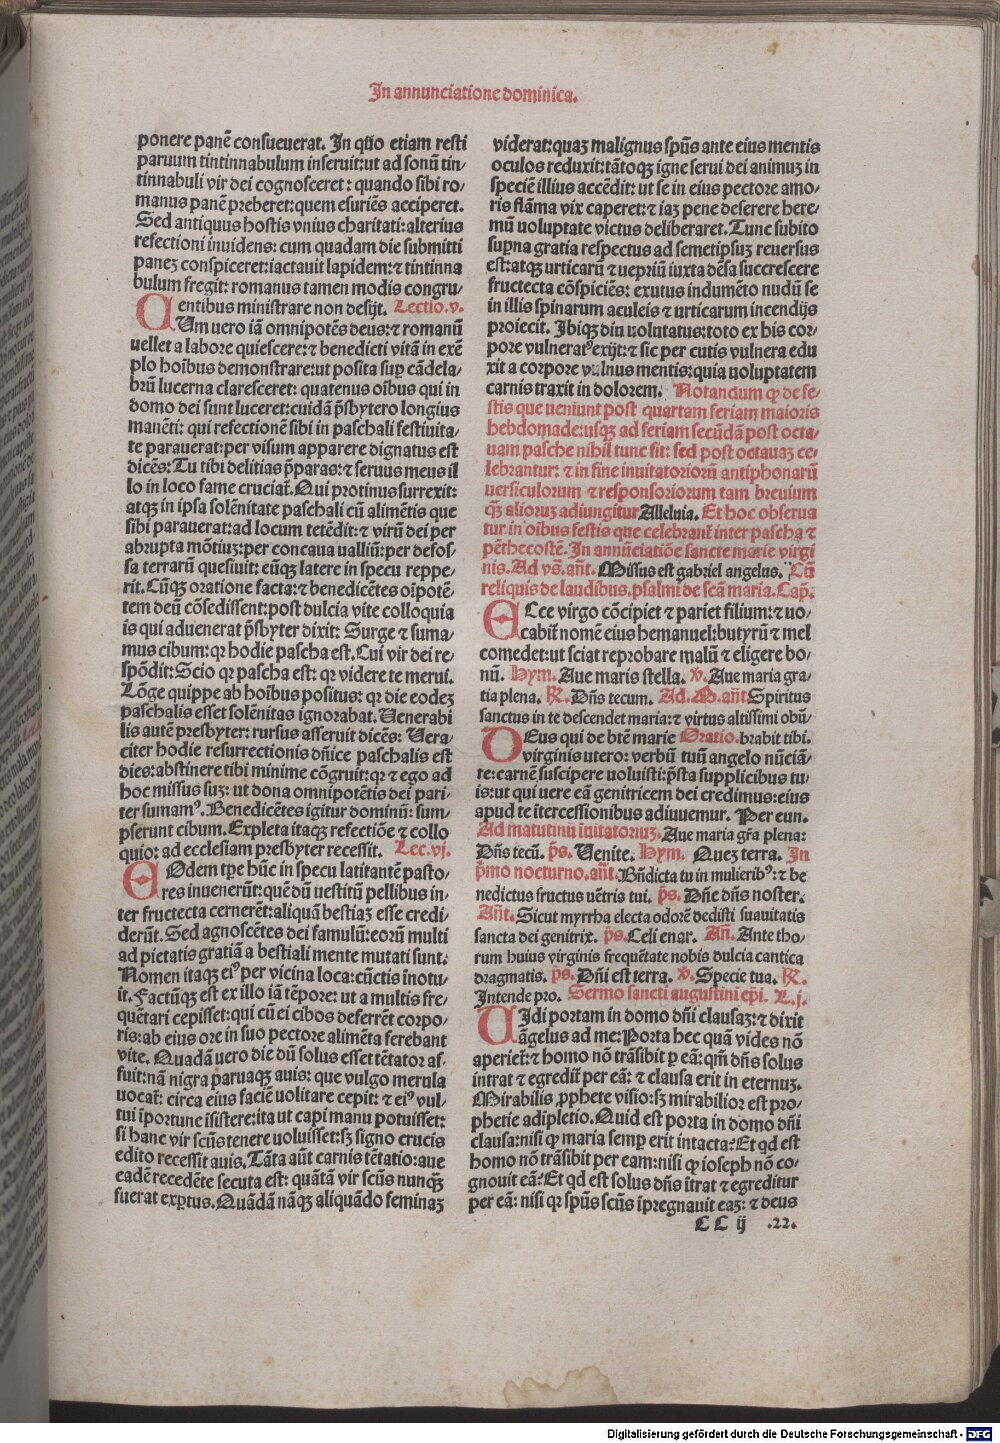 In annunciatione dominica.
ponere panē consueuerat. In quo etiam resti
paruum tintinnabulum inseruit:ut ad sonū tin⸗
tinnabuli vir dei cognosceret: quando sibi ro⸗
manus panē preberet:quem esuriēs acciperet.
Sed antiquus hostis vnius charitati:alterius
refectioni inuidens: cum quadam die submitti
panez conspiceret:iactauit lapidem:⁊ tintinna
bulum fregit: romanus tamen modis congru⸗
entibus ministrare non desijt. Lectio.v.
CUm uero iā omnipotēs deus:⁊ romanū
uellet a labore quiescere:⁊ benedicti vitā in exē
plo hoībus demonstrare:ut posita suꝑ cādela⸗
brū lucerna claresceret: quatenus oībus qui in
domo dei sunt luceret:cuidā p̄sbytero longius
manēti: qui refectionē sibi in paschali festiuita⸗
te parauerat:per visum apparere dignatus est
dicēs: Tu tibi delitias p̄paras:⁊ seruus meus il
lo in loco fame cruciat̄. Qui protinus surrexit:
atqꝫ in ipsa solēnitate paschali cū alimētis que
sibi parauerat:ad locum tetēdit:⁊ virū dei per
abrupta mōtiuꝫ:per concaua ualliū:per defos⸗
sa terrarū quesiuit:eūqꝫ latere in specu reppe⸗
rit. Cūqꝫ oratione facta:⁊ benedicētes oīpotē⸗
tem deū cōsedissent:post dulcia vite colloquia
is qui aduenerat p̄sbyter dixit: Surge ⁊ suma⸗
mus cibum:qꝛ hodie pascha est. Cui vir dei re⸗
spōdit: Scio qꝛ pascha est: qꝛ videre te merui.
Lōge quippe ab hoībus positus: qꝛ die eodeꝫ
paschalis esset solēnitas ignorabat. Uenerabi
lis autē presbyter: rursus asseruit dicēs: Uera⸗
citer hodie resurrectionis dn̄ice paschalis est
dies:abstinere tibi minime cōgruit:qꝛ ⁊ ego ad
hoc missus suꝫ: ut dona omnipotētis dei pari⸗
ter sumamꝰ. Benedicētes igitur dominū: sum⸗
pserunt cibum. Expleta itaqꝫ refectiōe ⁊ collo
quio: ad ecclesiam presbyter recessit. Lec.vj.
EOdem tꝑe hūc in specu latitantē pasto⸗
res inuenerūt:quē dū uestitū pellibus in⸗
ter fructecta cernerēt:aliquā bestiaꝫ esse credi⸗
derūt. Sed agnoscētes dei famulū:eorū multi
ad pietatis gratiā a bestiali mente mutati sunt.
Nomen itaqꝫ eiꝰ per vicina loca: cūctis inotu⸗
it. Factūqꝫ est ex illo iā tēpore: ut a multis fre⸗
quētari cepisset: qui cū ei cibos deferrēt corpo⸗
ris:ab eius ore in suo pectore alimēta ferebant
vite. Quadā uero die dū solus esset tētator af⸗
fuit:nā nigra paruaqꝫ auis: que vulgo merula
uocat̄: circa eius faciē uolitare cepit: ⁊ eiꝰ vul⸗
tui īportune īsistere:ita ut capi manu potuisset:
si hanc vir scūs tenere uoluisset:sꝫ signo crucis
edito recessit auis. Tāta aūt carnis tētatio: aue
eadē recedēte secuta est: quātā vir scūs nunqꝫ
fuerat exꝑtus. Quādā nāqꝫ aliquādo feminaꝫ
viderat:quaꝫ malignus spūs ante eius mentis
oculos reduxit:tātoqꝫ igne serui dei animuꝫ in
speciē illius accēdit: ut se in eius pectore amo⸗
ris flāma vix caperet:⁊ iaꝫ pene deserere here⸗
mū uoluptate victus deliberaret. Tunc subito
suꝑna gratia respectus ad semetipsuꝫ reuersus
est:atqꝫ urticarū ⁊ uepriū iuxta dēsa succrescere
fructecta cōspiciēs: exutus indumēto nudū se
in illis spinarum aculeis ⁊ urticarum incendijs
proiecit. Ibiqꝫ diu uolutatus:toto ex his cor⸗
pore vulneratꝰ exijt:⁊ sic per cutis vulnera edu
xit a corpore vulnus mentis:quia uoluptatem
carnis traxit in dolorem. Notandum ꝙ de fe⸗
stis que ueniunt post quartam feriam maioris
hebdomade:usqꝫ ad feriam secūdā post octa⸗
uam pasche nihil tunc fit: sed post octauaꝫ ce⸗
lebrantur: ⁊ in fine inuitatoriorū antiphonarū
uersiculorum ⁊ responsoriorum tam breuium
qꝫ aliorum adiungitur Alleluia. Et hoc obserua
tur in oībus festis que celebrant̄ inter pascha ⁊
pēthecostē. In annūciatiōe sancte marie virgi
nis. Ad vs̄. an̄t. Missus est gabriel angelus. Cū
reliquis de laudibus. psalmi de scā maria. Cap̄.
ECce virgo cōcipiet ⁊ pariet filium:⁊ uo⸗
cabit̄ nomē eius hemanuel:butyrū ⁊ mel
comedet:ut sciat reprobare malū ⁊ eligere bo⸗
nū. Hym. Aue maris stella. v̄. Aue maria gra⸗
tia plena. R̄. Dn̄s tecum. Ad. M. an̄t Spiritus
sanctus in te descendet maria:⁊ virtus altissimi obū⸗
DEus qui de btē marie Oratio. brabit tibi.
virginis utero: verbū tuū angelo nūciā⸗
te:carnē suscipere uoluisti:p̄sta supplicibus tu⸗
is:ut qui uere eā genitricem dei credimus:eius
apud te ītercessionibus adiuuemur. Per eun.
Ad matutinū īuitatoriuꝫ. Aue maria gr̄a plena:
Dn̄s tecū. p̄s. Uenite. Hym. Quez terra. In
p̄mo nocturno.an̄t. Bn̄dicta tu in mulieribꝰ:⁊ be
nedictus fructus uētris tui. p̄s. Dn̄e dn̄s noster.
An̄t. Sicut myrrha electa odorē dedisti suauitatis
sancta dei genitrix. p̄s. Celi enar. An̄. Ante tho⸗
rum huius virginis frequētate nobis dulcia cantica
dragmatis. p̄s. Dn̄i est terra. v̄. Specie tua. R̄.
Intende pro. Sermo sancti augustini ep̄i. L.j.
UIdi portam in domo dn̄i clausaꝫ:⁊ dixit
āgelus ad me:Porta hec quā vides nō
aperiet̄:⁊ homo nō trāsibit ꝑ eā:qm̄ dn̄s solus
intrat ⁊ egredit̄ per eā: ⁊ clausa erit in eternuꝫ.
Mirabilis ꝓphete visio:sꝫ mirabilior est pro⸗
phetie adipletio. Quid est porta in domo dn̄i
clausa:nisi ꝙ maria semꝑ erit intacta? Et qd est
homo nō trāsibit per eam:nisi ꝙ ioseph nō co⸗
gnouit eā? Et qd est solus dn̄s ītrat ⁊ egreditur
per eā: nisi qꝛ spūs scūs īpregnauit eaꝫ: ⁊ deus
CC ij .22.
Digitalisierung gefördert durch die Deutsche Forschungsgemeinschaft - DFG